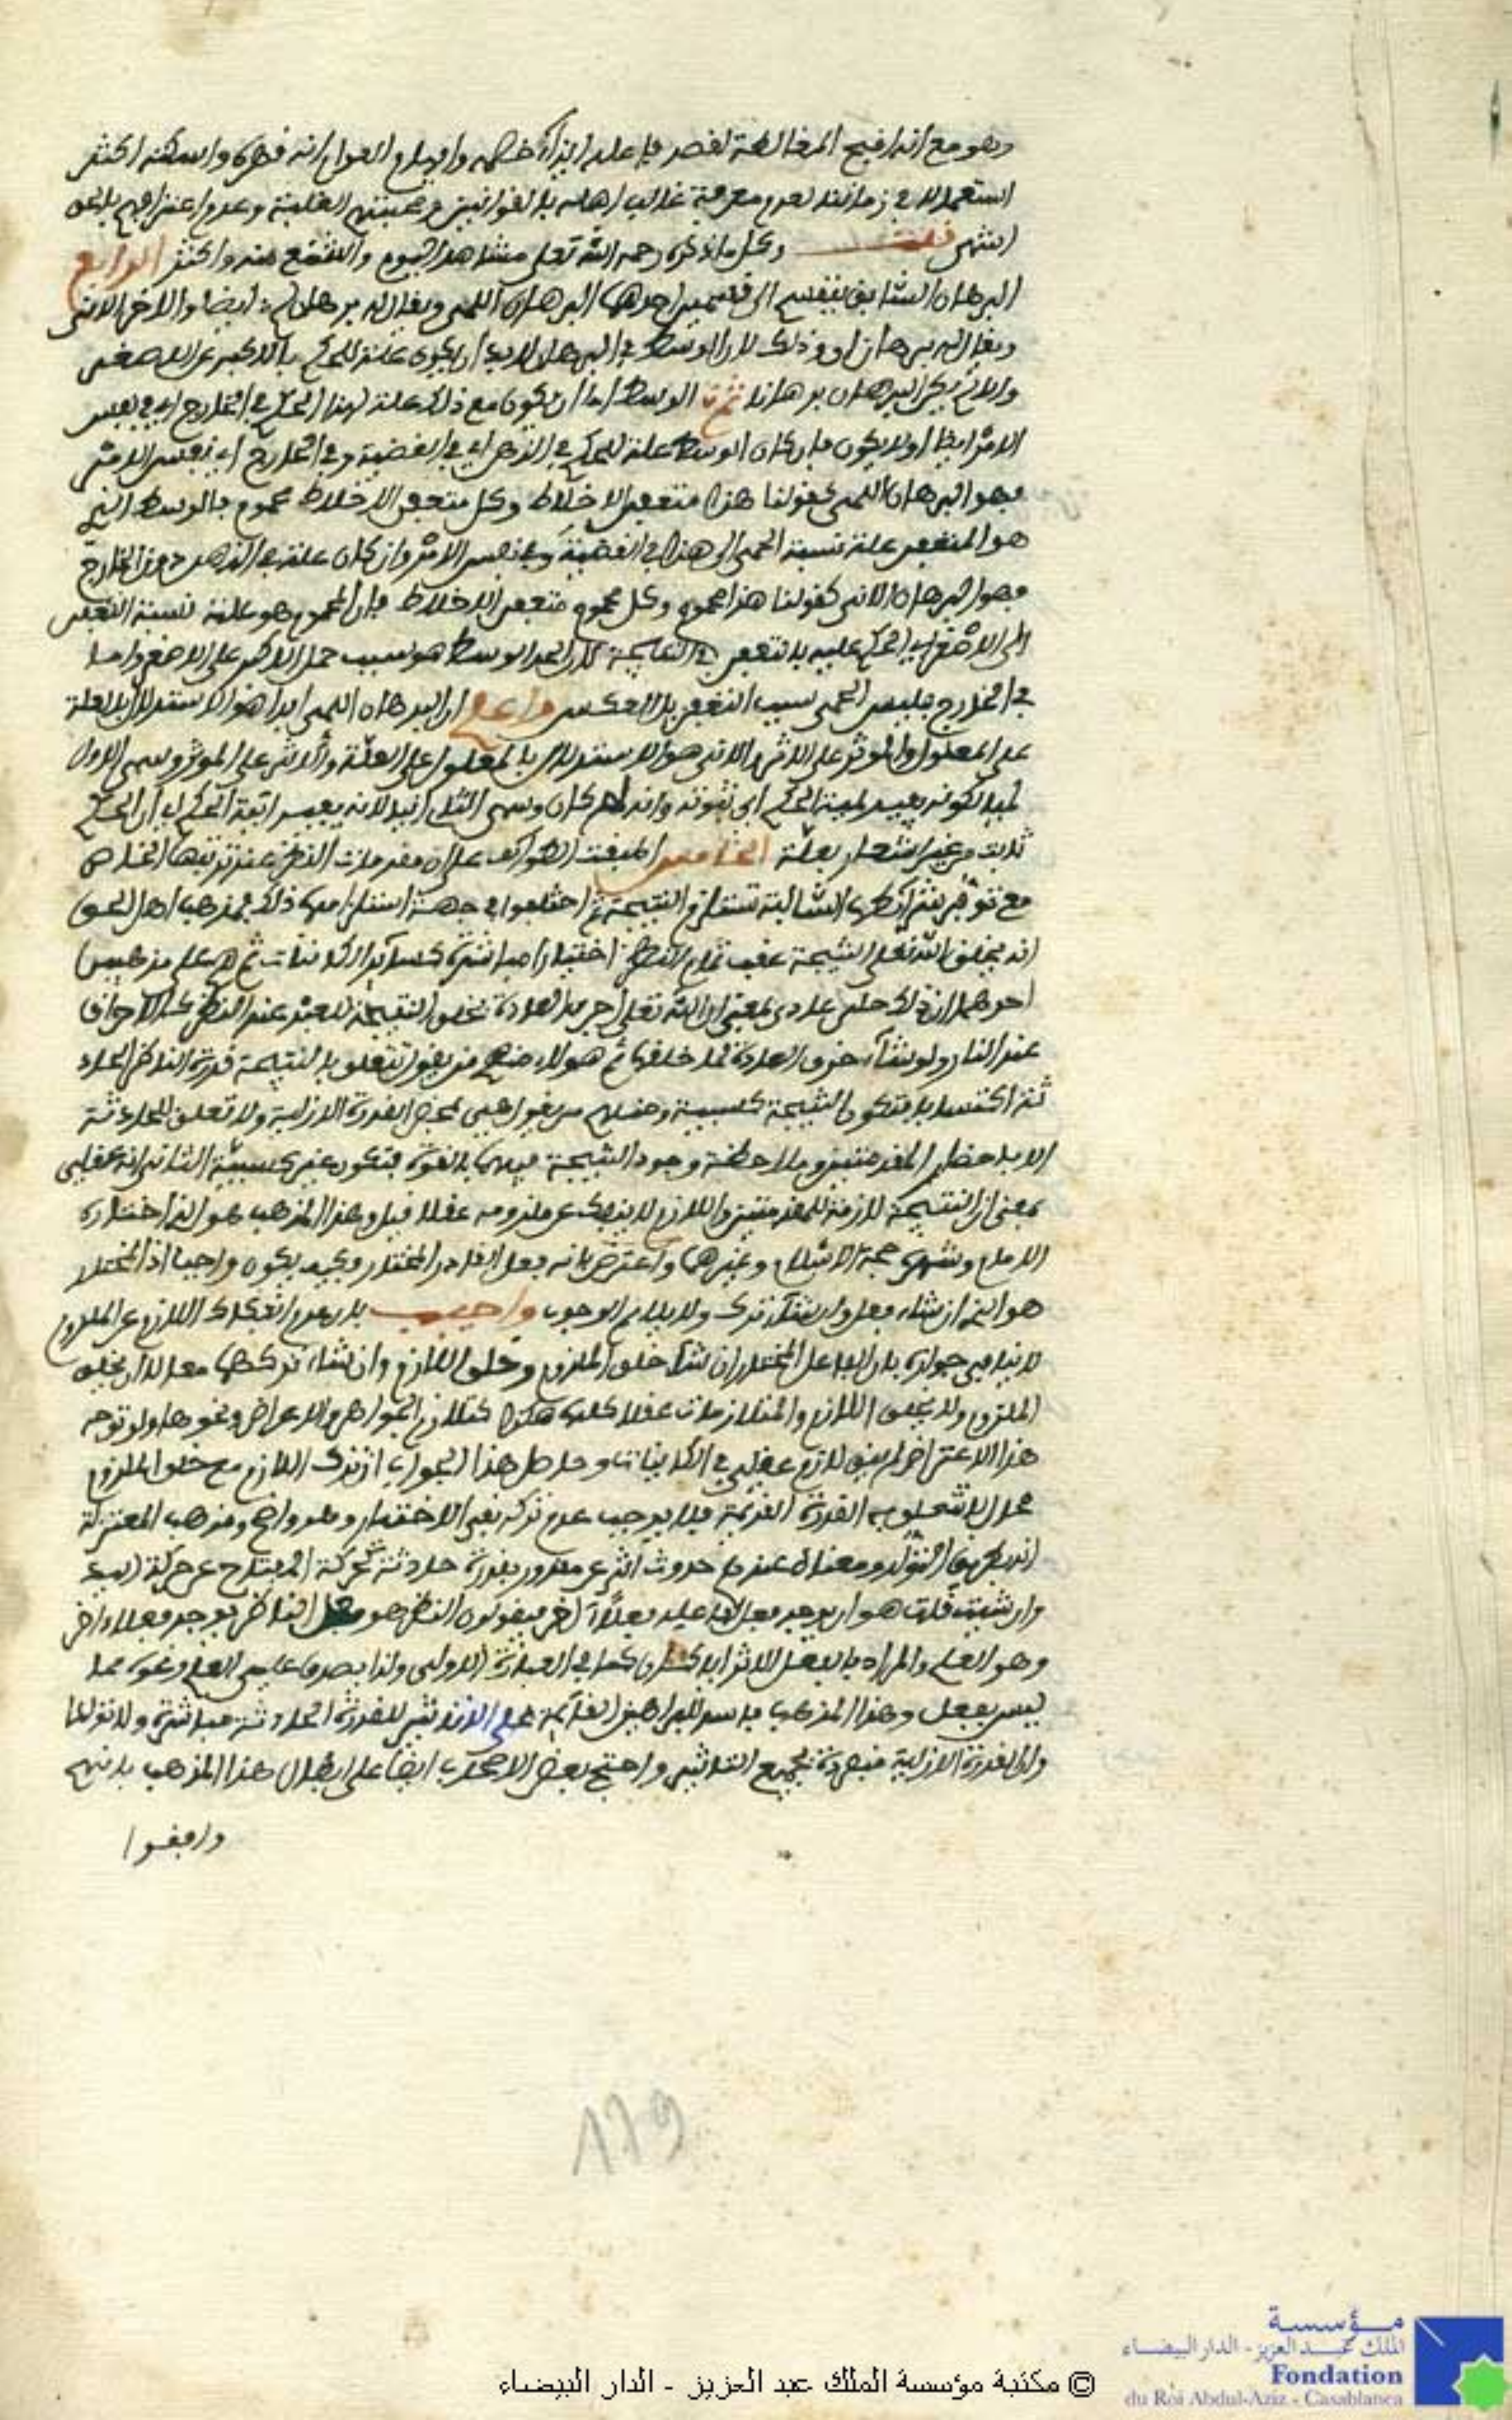 وهو مع انه اقبح المغالطة لقصد فاعله ايذاء خصمه وايهام العوام انه قهره واسكته اكثر
استعمالا في زماننا لعدم معرفة غالب اهله بالقوانين ومحبتهم الغلبة وعدم اعترافهم بالحق
انتهى قلت وكل ما ذكره رحمه الله تعلى مشاهد اليوم واشنع منه واكثر الرابع
البرهان السابق ينقسم الى قسمين احدهما البرهان اللمى ويقال له برهان لم ايضا والاخر الانى
ويقال له برهان ان وذلك لان الوسط في البرهان لابد ان يكون علة للحكم بالاكبر على الاصغر
والا لم يكن البرهان برهانا ثم الوسط اما ان يكون مع ذلك علة لهذا الحكم في الخارج اي في نفس
الامر ايضا اولا يكون فان كان الوسط علة للحكم في الذهن اي في القضية وفي الخارج اي نفس الامر
فهو البرهان اللمى كقولنا هذا متعفن الاخلاط وكل متعفن الاخلاط محموم فالوسط الذي
هو المتعفن علة نسبة الحمى الى هذا في القضية وفي نفس الامر وان كان علة في الذهن دون الخارج
فهو البرهان الانى كقولنا هذا محموم وكل محموم متعفن الاخلاط فان المحموم هو علة نسبة التعفن
الى الاصغر اي الحكم عليه بالتعفن في النتيجة لان الحد الوسط هو سبب حمل الاكبر على الاصغر واما
في الخارج فليس الحمى سبب التعفن بل العكس واعلم ان البرهان اللمى ابدا هو الاستدلال بالعلة
على المعلول والموثر على الاثر والانى هو الاستدلال بالمعلول على العلة والاثر على الموثر وسمى الاول
لميا لكونه يفيد لمية الحكم اي ثبوته وانه لم كان وسمى الثانى انيا لانه يفيد انية الحكم اي ان الحكم
ثابت من غير اشعار بعلة الخامس اطبقت الطوائف على ان مقدمات النظر عند ترتبها الخاص
مع توفر شرائطها السالبة تستلزم النتيجة ثم اختلفوا في جهة استلزامها ذلك فمذهب اهل الحق
انه يخلق الله تعلى النتيجة عقب تمام النظر اختيارا مباشرة كسائر الكائنات ثم هم على مذهبين
احدهما ان ذلك حكم عادى بمعنى ان الله تعلى اجرى العادة بخلق النتيجة للعبد عند النظر كالاحراق
عند النار ولو شاء خرق العادة لما خلقها ثم هولاء منهم من يقول تتعلق بالنتيجة قدرة الناظر الحاد
ثة اكتسابا فتكون النتيجة كسبية ومنهم من يقول هي بمحض القدرة الازلية ولا تعلق للحادثة
الا باحضار المقدمتين وملاحظة وجود النتيجة فيهما بالقوة فتكون غير كسبية الثانى انه عقلى
بمعنى ان النتيجة لازمة للمقدمتين واللازم لا ينفك عن ملزومه عقلا قيل وهذا المذهب هو الذي اختاره
الامام وشهره حجة الاسلام وغيرهما واعترض بانه فعل القادر المختار وكيف يكون واجبا اذ المختار
هو الذي ان شاء فعل وان شاء ترك ولا يلايم الوجوب واجيب بان عدم انفكاك اللازم عن الملزوم
لا ينافي جوازه بان الفاعل المختار ان شاء خلق الملزوم وخلق اللازم وان شاء تركهما معا لا ان يخلق
الملزوم ولا يخلق اللازم والمتلازمات عقلا كلها هكذا كتلازم الجواهر والاعراض ونحوها ولو توجه
هذا الاعتراض لم يبق لازم عقلى في الكائنات وحاصل هذا الجواب ان ترك اللازم مع خلق الملزوم
محال لا تتعلق به القدرة القديمة فلا يوجب عدم تركه نفى الاختيار وهو واضح ومذهب المعتزلة
انه بطريق التولد ومعناه عندهم حدوث اثر عن مقدور بقدرة حادثة كحركة المفتاح عن حركة اليد
وان شئت قلت هو ان يوجد فعل لفاعله فعلا اخر فيقولون النظر هو فعل الناظر يوجد فعلا اخر
وهو العلم والمراد بالفعل الاثر اياما كان كما في العبارة الاولى ولذا يصدق على العلم ونحوه مما
ليس بفعل وهذا المذهب فاسد للبراهين القائمة على الا تاثير للقدرة الحادثة مباشرة ولا تولدا
وان القدرة الازلية منفردة بجميع التاثير واحتج بعض الاصحاب ايضا على ابطال هذا المذهب بانهم
وافقوا
119
مؤسسة
الملك عبد العزيز - الدار البيضاء
Fondation
du Roi Abdul-Aziz - Casablanca
© مكتبة مؤسسة الملك عبد العزيز - الدار البيضاء